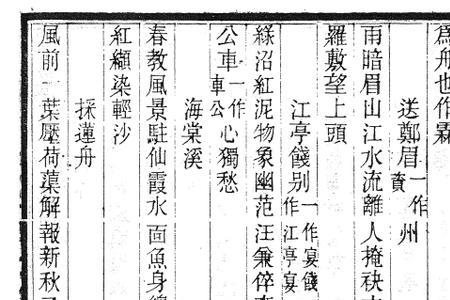 爲舟也作霖
送鄭眉一作州
雨暗眉山江水流離人掩袂
羅敷望上頭
江亭餞別一作宴餞作江亭宴
綠沼紅泥物象幽范汪兼倅
公車一作車公心獨愁
海棠溪
春教風景駐仙霞水面魚身總
紅纈染輕沙
採蓮舟
風前一葉壓荷蕖解報新秋又